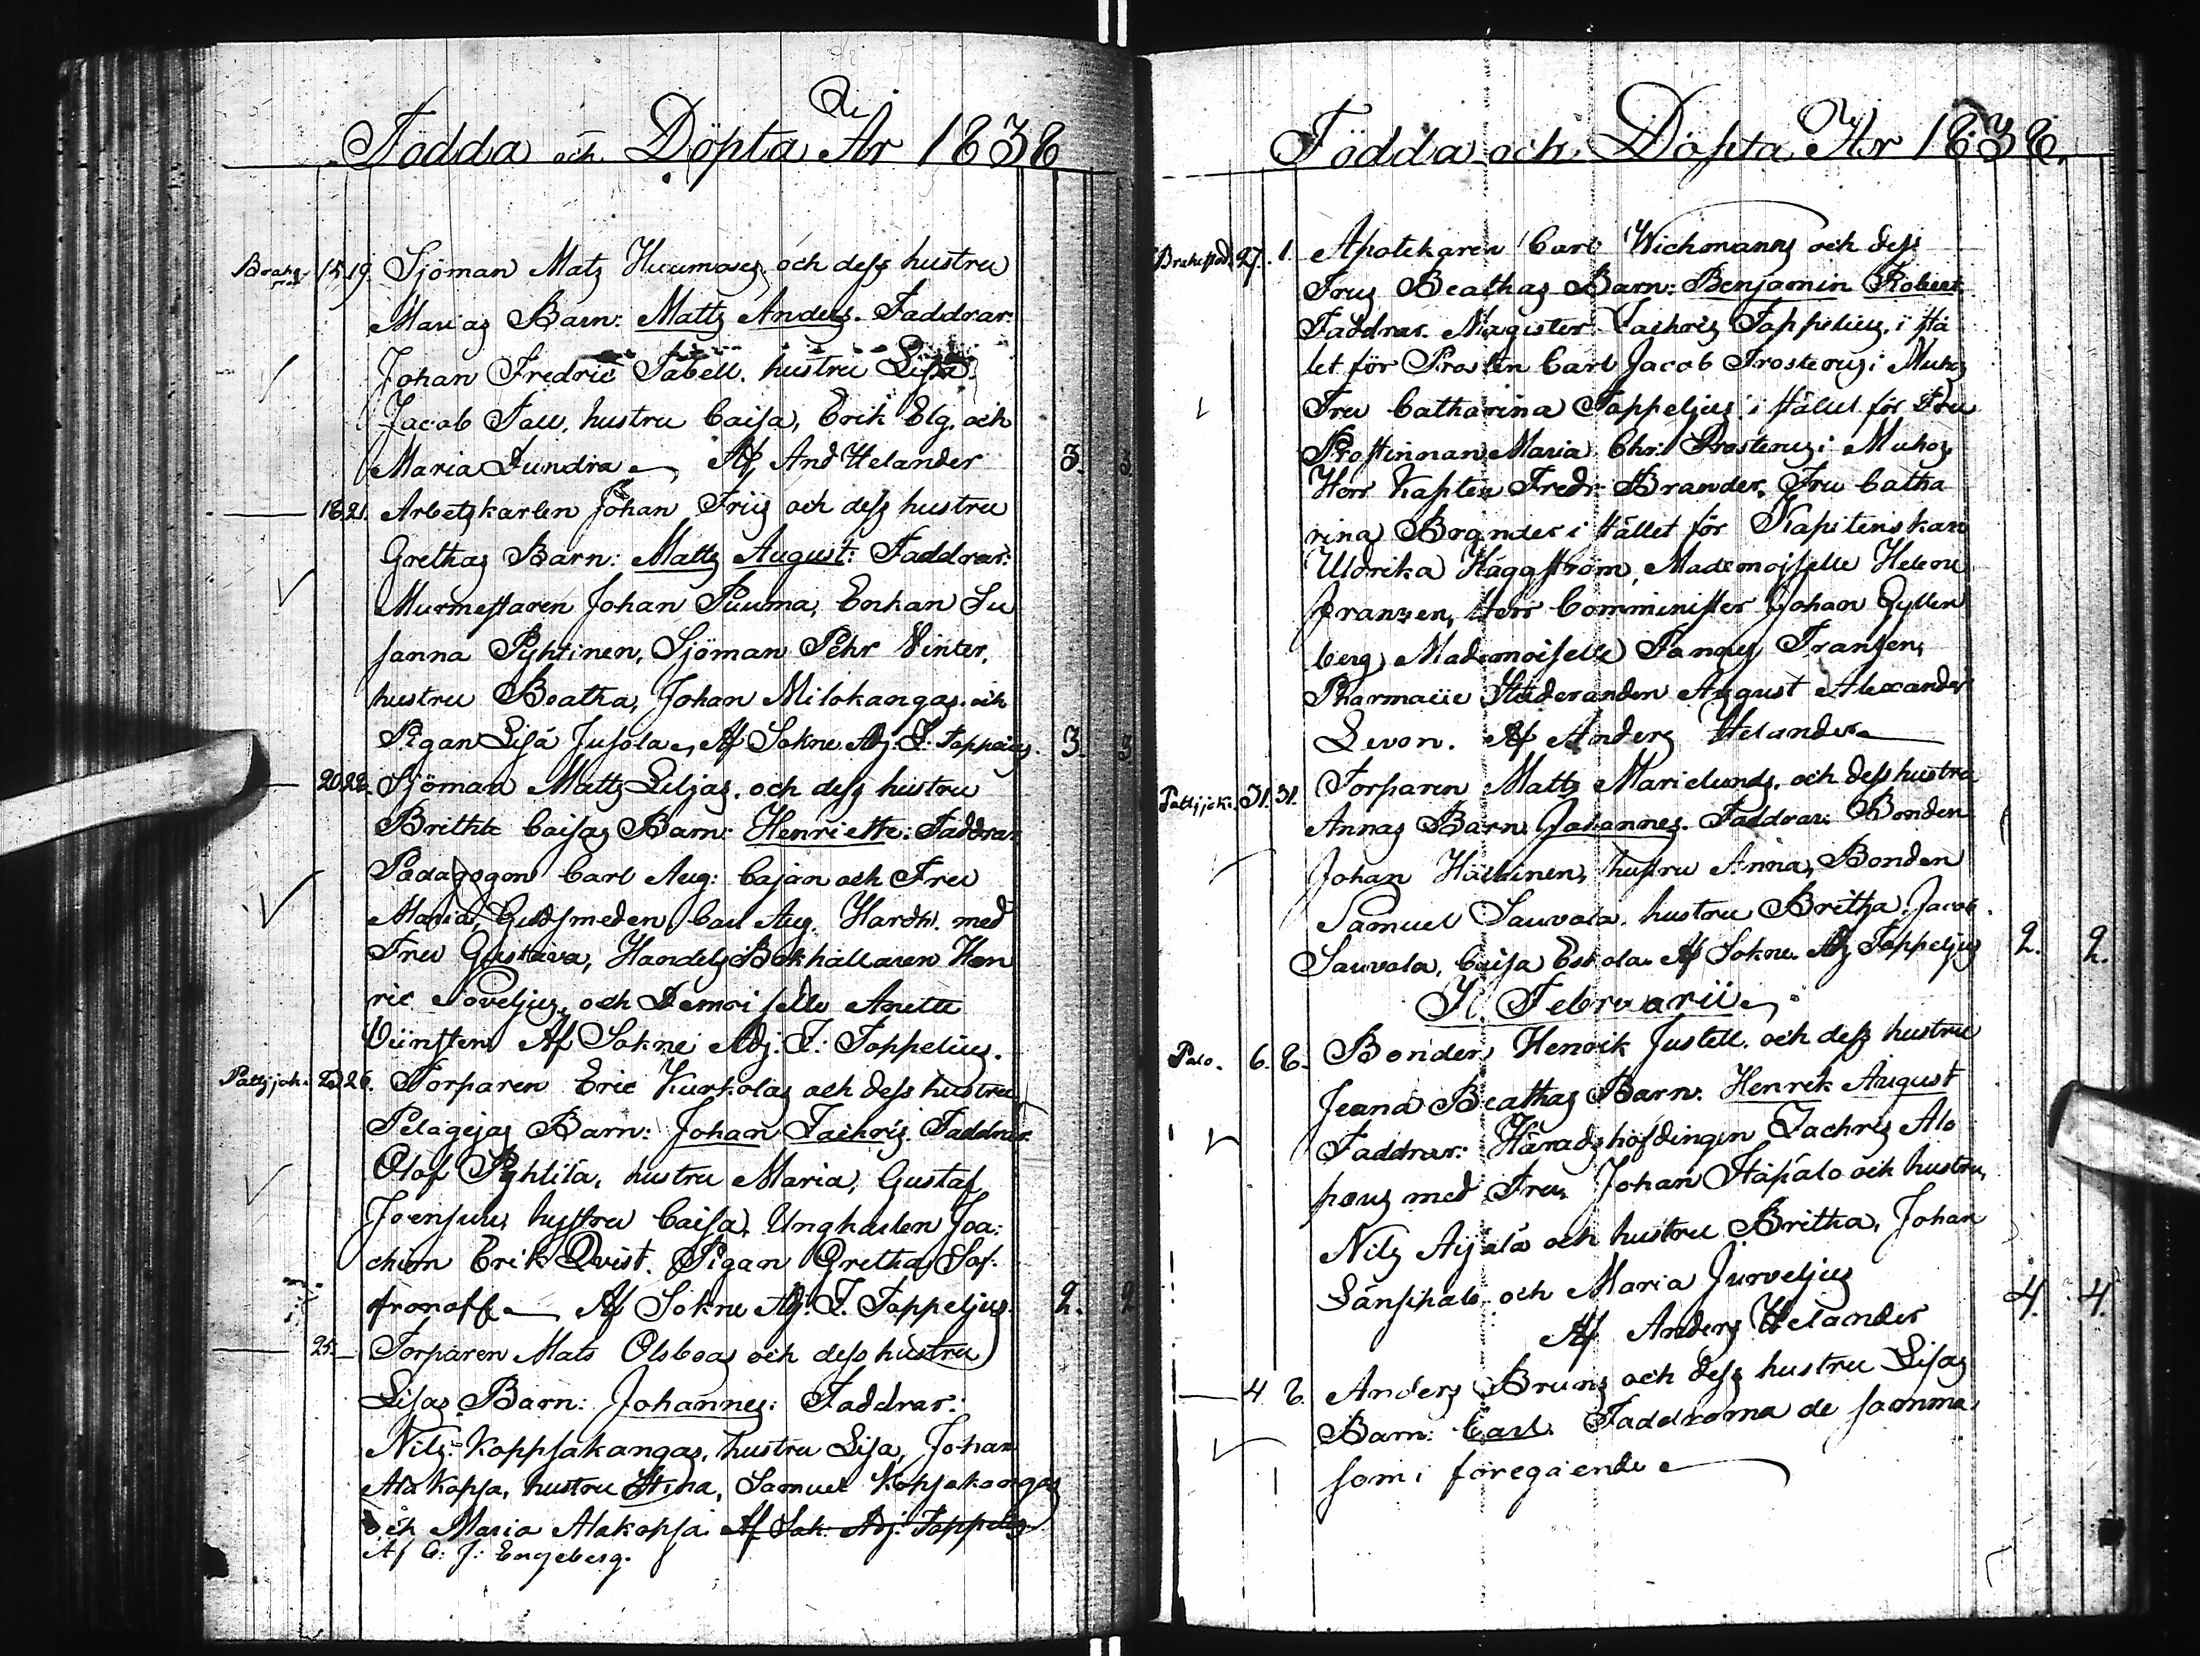 Födda och Döpta År 1838
Brahe stad 15. 19. Sjöman Mats Huumas, och dess hustru
Marias Barn: Matts Anders. Faddrar:
Johan Fredric Tabell. hustru Lisa.
Jacob Fall, hustru Caisa, Erik Elg. och
Maria Lundra Af And Helander 3. 3.
18. 21. Arbetskarlen Johan Friis och dess hustru
Grethas Barn: Matts August: Faddrar:
Murmestaren Johan Puuma, Enkan Su
sanna Pyhtinen, Sjöman Pehr Vinter,
hustru Beatha, Johan Milokangas. och
Pigan Lisa Jusola, Af Sokne Adj. Z: Toppelius. 3. 3
20. 22. Sjöman Matts Liljas. och dess hustru
Britha Caisas Barn: Henriette: Faddrar
Pædagogen Carl Aug: Cajan och Fru
Maria, Guldsmeden, Carl Aug. Hardh. med
Fru Gustava, Handels Bokhållaren Hen
ric Poveljus, och Demoiselle Anette
Af Sokne Adj. Z: Toppelius.
Pattijoki 26. Torparen Eric Kurkolas och dess hustru
Pelagejas Barn: Johan Zachris. Faddrar.
Olof Pyhtilä, hustru Maria, Gustaf
Joensuu, hustru Caisa, Ungkarlen Joa:
chim Erik Qvist. Pigan Gretha Saf:
fronoff Af Sokne Adj. Z. Toppeljus. 2. 2
25. Torparen Mats Olsboas och dess hustru
Lisas Barn: Johannes: Faddrar:
Nils Koppsakangas, hustru Lisa, Johan
Ala Kopsa, hustru Stina, Samuel Kopsakangas
och Maria Alakopsa. Af Sok: Adj: Toppelius
Af C: J: Engeberg.
Födda och Döpta År 1838.
Brahestad. 27. 1. Apotekaren Carl Wichmanns och dess
Frus Beathas Barn: Benjamin Robert
Faddrar. Magister Zachris Toppelius, i stä
let för Prosten Carl Jacob Frosterus i Muhos
Fru Catharina Toppeljus i stället för Fru
Prostinnan Maria Chr. Frosterus i Muhos,
Herr Kapten Fredr: Brander, Fru Catha
rina Brander i stället för Kapitenskan
Uldrika Häggström, Mademoiselle Helena
Franzen, Herr Comminister Johan Gyllen
berg, Mademoiselle Fanny Franzen,
Pharmacie Studeranden August Alexander
Levon. Af Anders Helander
Pattijoki. 31. 31. Torparen Matts Marielunds, och dess hustru
Annas Barn Johannes. Faddrar: Bonden
Johan hustru Anna, Bonden
Samuel Sauvola, hustru Britha, Jacob
Sauvola, Caisa Eskola. Af Sokne Adj Toppeljus 2. 2.
Februarii
Palo. 6. 8. Bonden Henrik Justell, och dess hustru
Jeana Beathas Barn: Henrik August
Faddrar: Häradshöfdingen Zachris Alo
pæus med Fru, Johan Hápalo och hustru,
Nils Aijälä och hustru Britha, Johan
Länsipalo och Maria Jurveljus 4. 4.
Af Anders Helander
4. 8. Anders Bruns och dess hustru Lisas
Barn: Carl. Faddrarna de samma
som i föregående